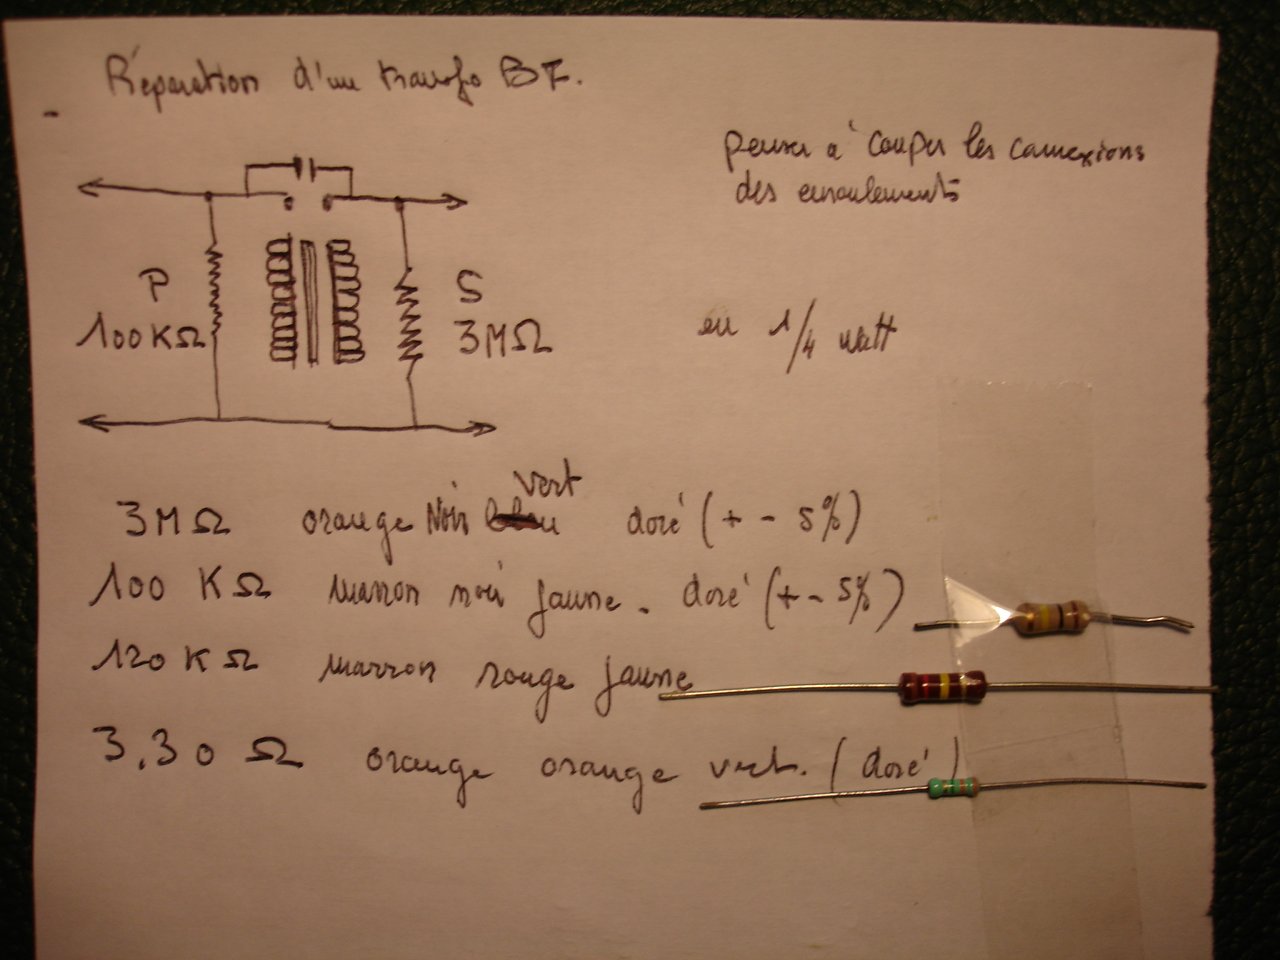 Réparation d'un transfo BF.
penser à couper les connexions
des enroulements
P
100KΩ
S
3MΩ
en 1/4 watt
vert
3MΩ orange Noir doré (+ - 5%)
100 KΩ marron noir jaune. doré (+ - 5%)
120 KΩ marron rouge jaune
3.30 Ω orange orange vert. (doré)